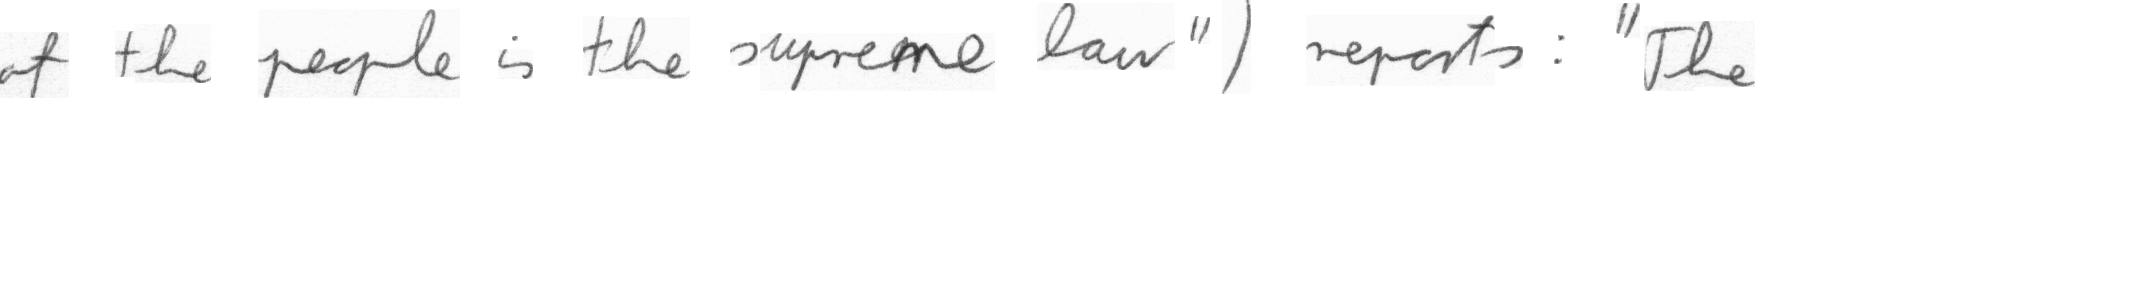 of the people is the supreme law") reports: "The